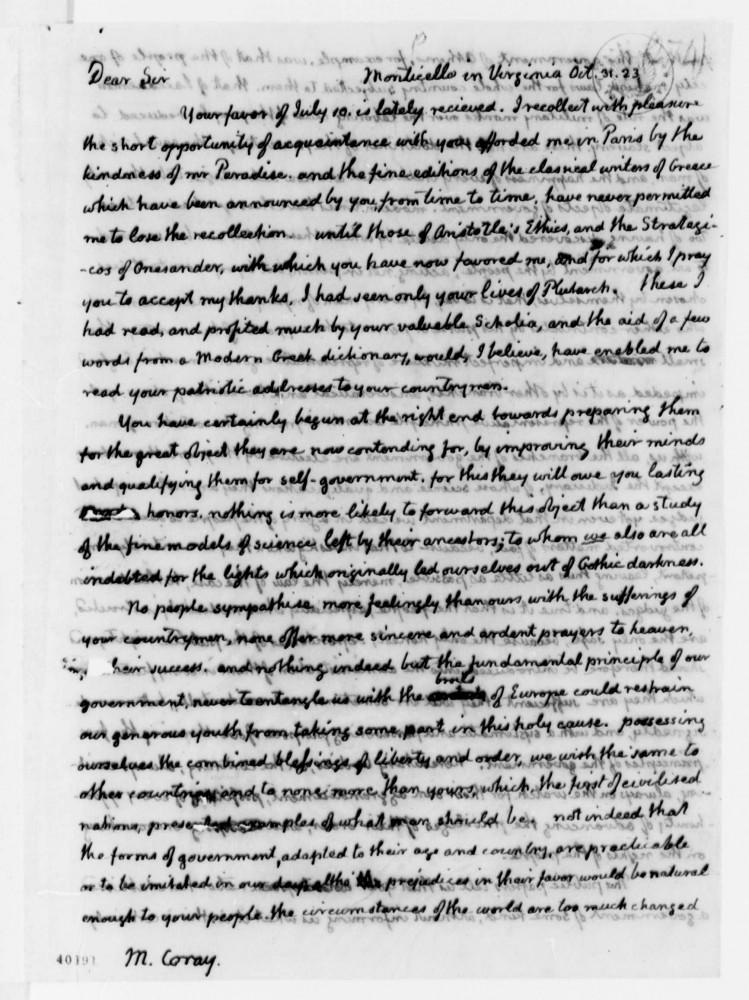 Dear Sir Monticello in Virginia Oct. 31. 23
Your favor of July 10. is lately recieved. I recollect with pleasure
the short opportunity of acquaintance with you afforded me in Paris by the
kindness of mr Paradise. and the fine editions of the classical writers of Greece
which have been announced by you, from time to time, have never permitted
me to lose the recollection. until those of Aristotle's Ethics, and the Strategi-
-cos of Onesander, with which you have now favored me, and for which I pray
you to accept my thanks, I had seen only your lives of Plutarch. These I
had read, and profited much by your valuable Scholia, and the aid of a few
words from a Modern Greek dictionary, would, I believe, have enabled me to
read your patriotic addresses to your countrymen.
You have certainly begun at the right end towards preparing them
for the great object they are now contending for, by improving their minds
and qualifying them for self-government. for this they will owe you lasting
honors. nothing is more likely to forward this object than a study
of the fine models of science left by their ancestors; to whom we also are all
indebted for the lights which originally led ourselves out of Gothic darkness.
No people sympathise more feelingly than ours with the sufferings of
your countrymen, none offer more sincere and ardent prayers to heaven
heir success. and nothing indeed but the fundamental principle of our
government, never to entangle us with the broils of Europe could restrain
our generous youth from taking some part in this holy cause. possessing
ourselves the combined blessings of liberty and order, we wish the same to
other countries and to none more than yours, which, the first of civilised
nations, presented examples of what man should be. not indeed that
the forms of government, adapted to their age and country, are practicable
or to be imitated in our day, altho' prejudices in their favor would be natural
enough to your people. the circumstances of the world are too much changed
40191 M. Coray.